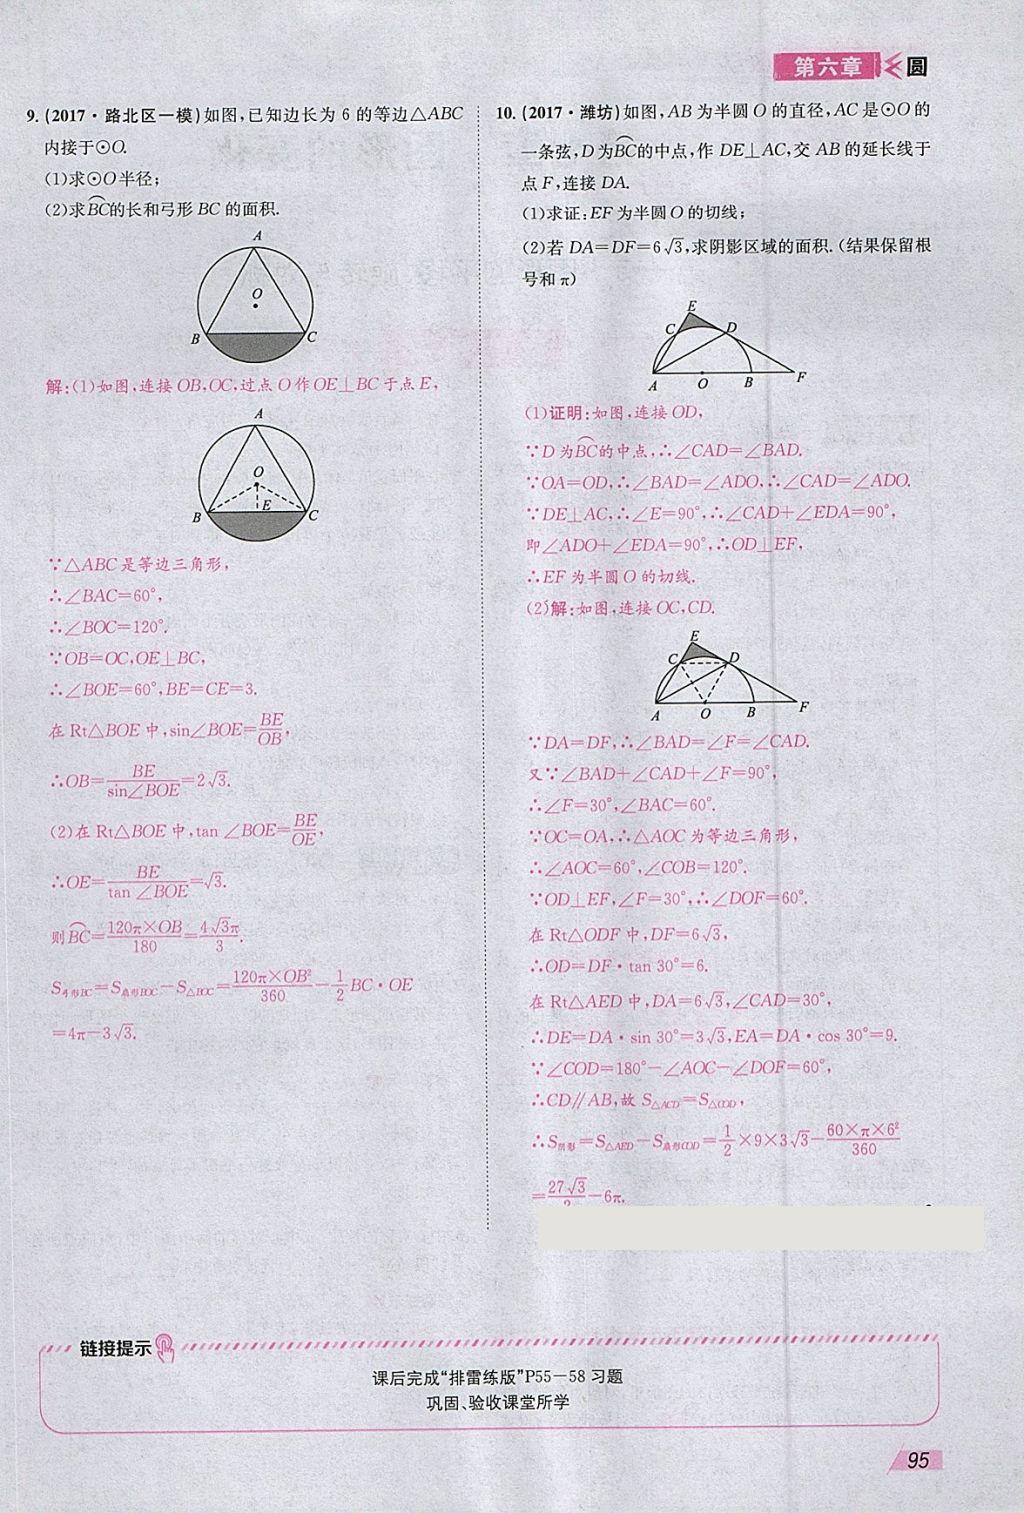 第六章 圆
9. (2017·路北区一模)如图,已知边长为 6 的等边△ABC
内接于⊙O.
(1)求⊙O半径;
(2)求BC⌒的长和弓形 BC 的面积.
A
O
B
C
解:(1)如图,连接OB,OC,过点O作OE⊥BC于点E,
A
O
B
E
C
∵△ABC是等边三角形,
∴∠BAC=60°,
∴∠BOC=120°.
∵OB=OC,OE⊥BC,
∴∠BOE=60°,BE=CE=3.
在Rt△BOE中,sin∠BOE=BE/OB,
∴OB=BE/sin∠BOE=2√3.
(2)在Rt△BOE中,tan ∠BOE=BE/OE,
∴OE=BE/tan ∠BOE=√3.
则BC⌒=120π×OB/180=4√3π/3.
S弓形BC=S扇形BOC−S△BOC=120π×OB²/360−1/2 BC·OE
=4π−3√3.
10. (2017·潍坊)如图,AB 为半圆 O 的直径,AC 是⊙O 的
一条弦,D为BC⌒的中点,作 DE⊥AC,交 AB 的延长线于
点 F,连接 DA.
(1)求证:EF 为半圆 O 的切线;
(2)若 DA=DF=6√3,求阴影区域的面积.(结果保留根
号和 π)
E
C
D
A
O
B
F
(1)证明:如图,连接OD,
∵D为BC⌒的中点,∴∠CAD=∠BAD.
∵OA=OD,∴∠BAD=∠ADO,∴∠CAD=∠ADO.
∵DE⊥AC,∴∠E=90°,∴∠CAD+∠EDA=90°,
即∠ADO+∠EDA=90°,∴OD⊥EF,
∴EF为半圆O的切线.
(2)解:如图,连接OC,CD.
E
C
D
A
O
B
F
∵DA=DF,∴∠BAD=∠F=∠CAD.
又∵∠BAD+∠CAD+∠F=90°,
∴∠F=30°,∠BAC=60°.
∵OC=OA,∴△AOC为等边三角形,
∴∠AOC=60°,∠COB=120°.
∵OD⊥EF,∠F=30°,∴∠DOF=60°.
在Rt△ODF中,DF=6√3,
∴OD=DF·tan 30°=6.
在Rt△AED中,DA=6√3,∠CAD=30°,
∴DE=DA·sin 30°=3√3,EA=DA·cos 30°=9.
∵∠COD=180°−∠AOC−∠DOF=60°,
∴CD∥AB,故S△ACD=S△COD,
∴S阴影=S△AED−S扇形COD=1/2×9×3√3−60×π×6²/360
=27√3/2−6π.
链接提示
课后完成“排雷练版”P55−58 习题
巩固、验收课堂所学
95